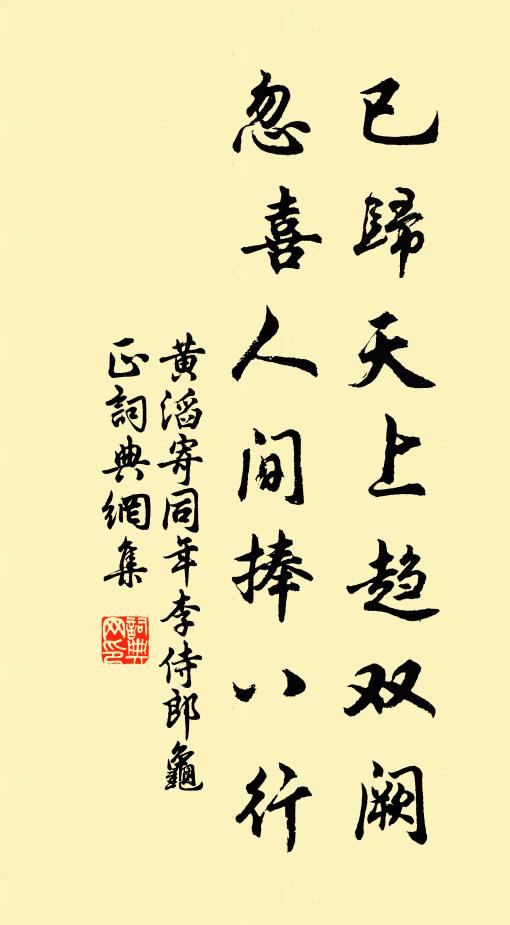 已歸天上趋双阙
忽喜人间捧八行
黄滔寄同年李侍郎龜
正詞典網集
詞典
网印